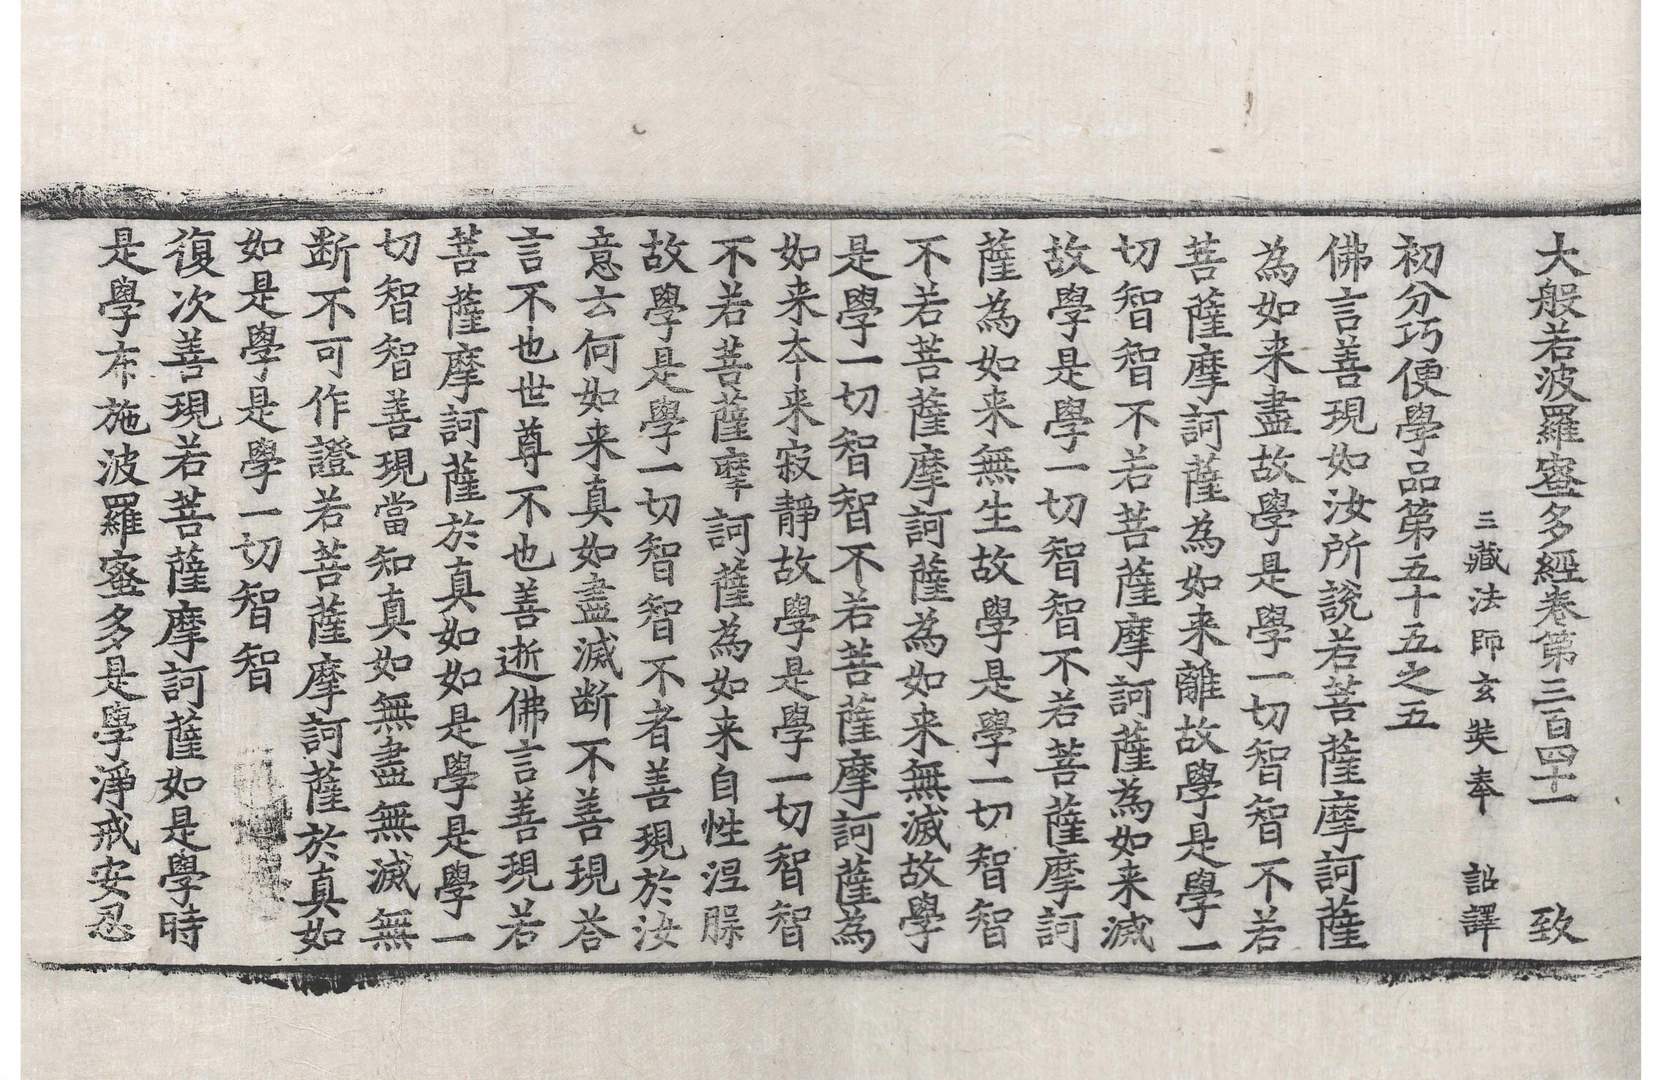 大般若波羅蜜多經卷第三百四十一　致
三藏法師玄奘奉　詔譯
初分巧便學品第五十五之五
佛言善現如汝所說若菩薩摩訶薩
為如来盡故學是學一切智智不若
菩薩摩訶薩為如来離故學是學一
切智智不若菩薩摩訶薩為如来滅
故學是學一切智智不若菩薩摩訶
薩為如来無生故學是學一切智智
不若菩薩摩訶薩為如来無滅故學
是學一切智智不若菩薩摩訶薩為
如来本来寂靜故學是學一切智智
不若菩薩摩訶薩為如来自性涅槃
故學是學一切智智不者善現於汝
意云何如来真如盡滅断不善現荅
言不也世尊不也善逝佛言善現若
菩薩摩訶薩於真如如是學是學一
切智智善現當知真如無盡無滅無
断不可作證若菩薩摩訶薩於真如
如是學是學一切智智
復次善現若菩薩摩訶薩如是學時
是學布施波羅蜜多是學淨戒安忍